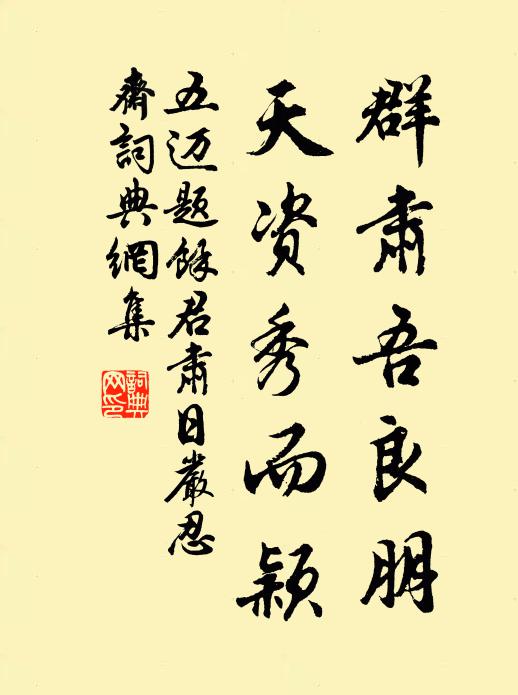 群肃吾良朋
天资秀而颖
五迈题馀君肃日严忍
斋词典网集
词典网印